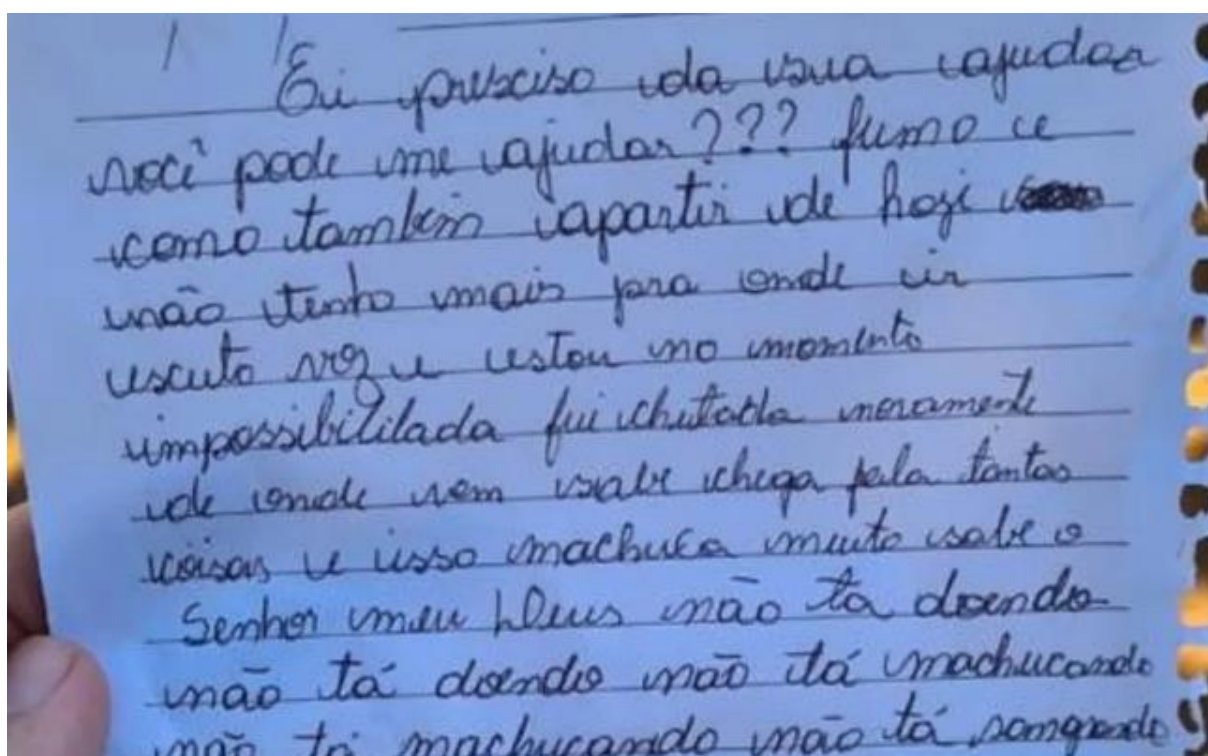 Ei presciso da sua ajudar
você pode me ajudar??? fumo e
como também apartir de hoje
não tenho mais pra onde ir
escuto voz e estou no momento
impossibililada fui chutada
de onde vem sabe chega fala tantas
coisas e isso machuca muito sabe o
Senhor meu Deus não ta doendo
não tá doendo não tá machucando
não tá machucando não tá sangrando